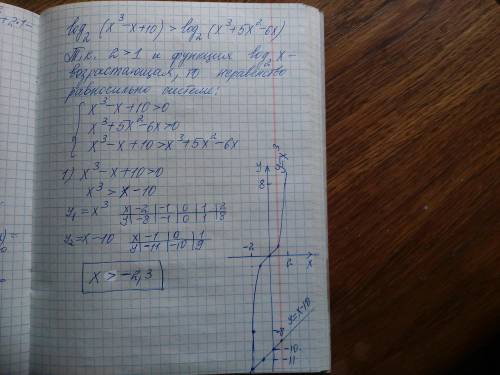 log₂(x³-x+10)>log₂(x³+5x²-6x)
Т.к. 2>1 и функция log₂x-
возрастающая, то неравенство
равносильно системе:
x³-x+10>0
x³+5x²-6x>0
x³-x+10>x³+5x²-6x
1) x³-x+10>0
x³>x-10
y₁=x³ x -2 -1 0 1 2
y -8 -1 0 1 8
y₂=x-10 x -1 0 1
y -11 -10 9
x > -2,3
y
y=x³
8
-2
2
x
y=x-10
-8
-10
-11